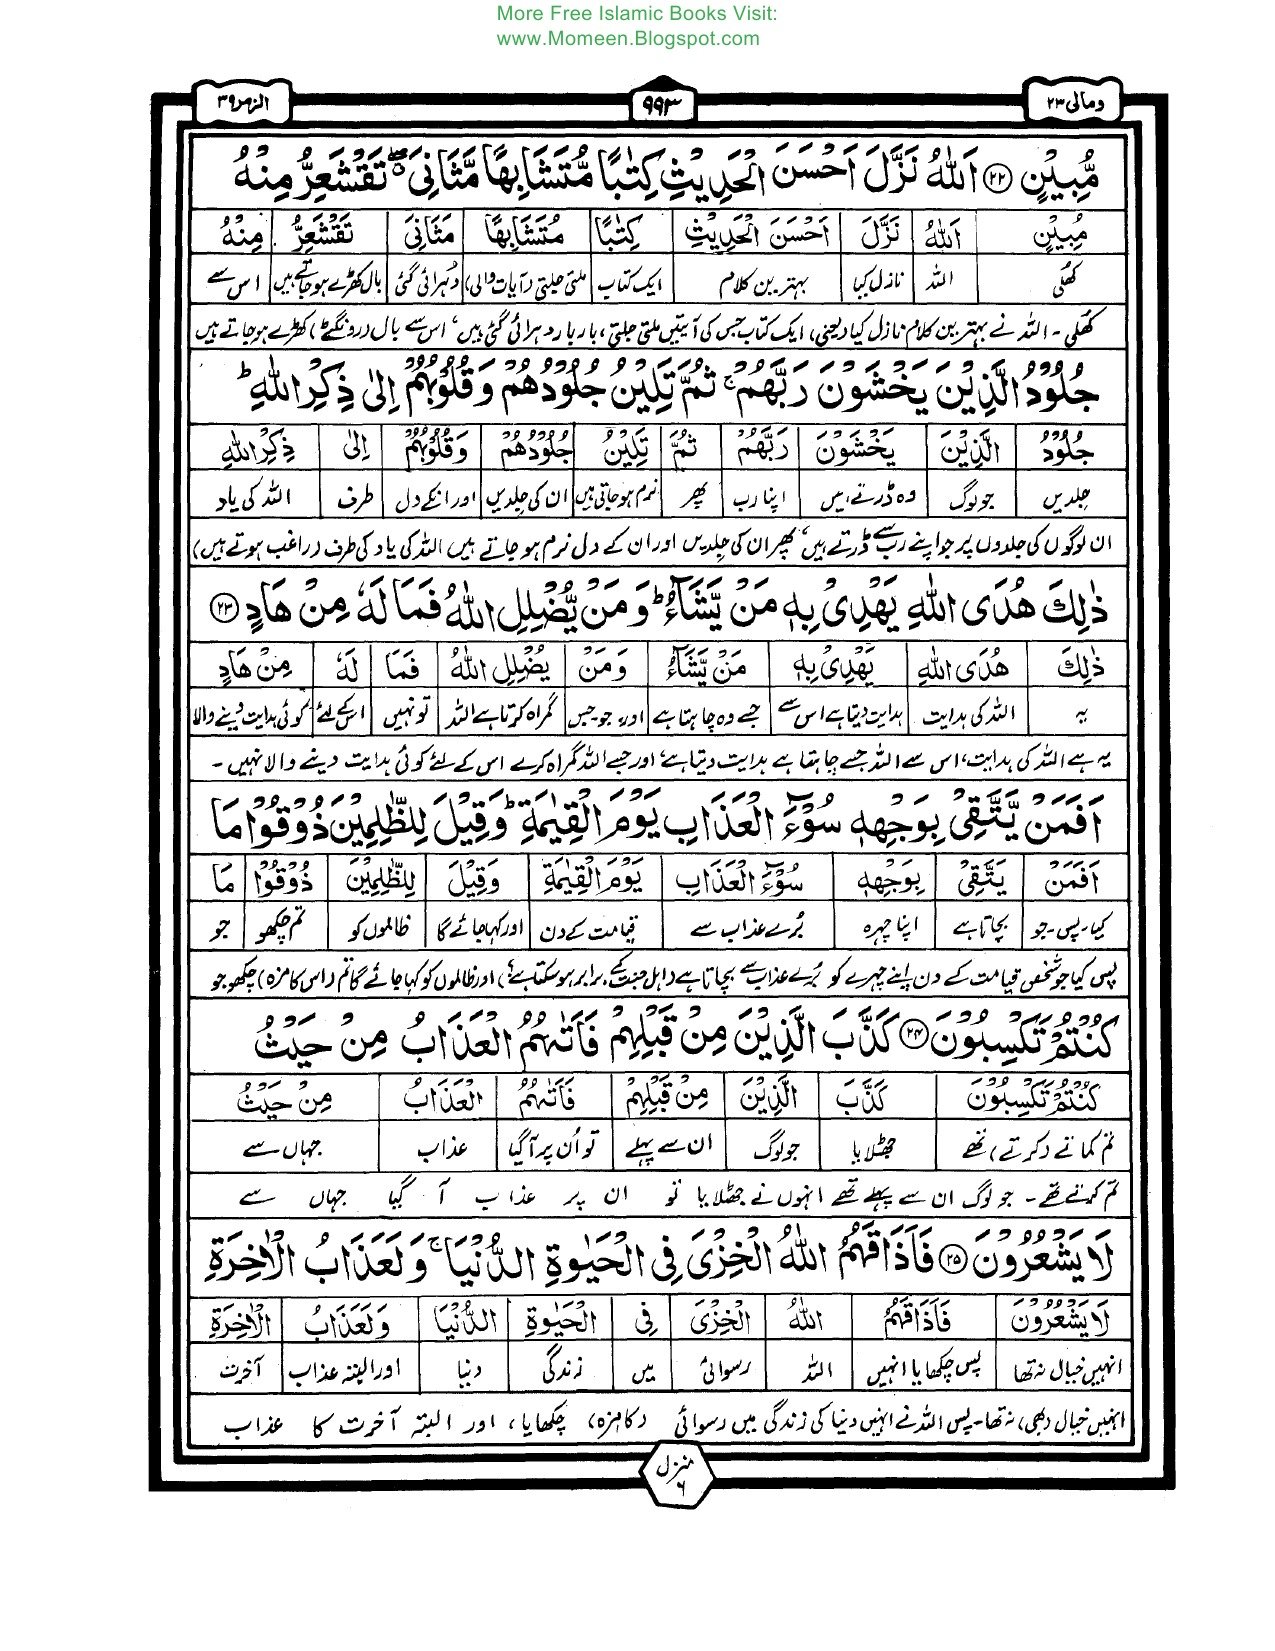 More Free Islamic Books Visit:
www.Momeen.Blogspot.com
ومالی ۲۳
۹۹۳
الزمر ۳۹
مُّبِيْنٍ ۝۲۲ اَللّٰهُ نَزَّلَ اَحْسَنَ الْحَدِيْثِ كِتٰبًا مُّتَشَابِهًا مَّثَانِيَ ۖ تَقْشَعِرُّ مِنْهُ
مُبِيْنٍ اَللّٰهُ نَزَّلَ اَحْسَنَ الْحَدِيْثِ كِتٰبًا مُتَشَابِهًا مَثَانِيَ تَقْشَعِرُّ مِنْهُ
کھلی اللہ نازل کیا بہترین کلام ایک کتاب ملتی جلتی (آیات والی) دُہرائی گئی بال کھڑے ہوجاتے ہیں اس سے
کھلی ۔ اللہ نے بہترین کلام نازل کیا (یعنی) ایک کتاب جس کی آیتیں ملتی جلتی، بار بار دہرائی گئی ہیں، اس سے بال (رونگٹے) کھڑے ہوجاتے ہیں
جُلُوْدُ الَّذِيْنَ يَخْشَوْنَ رَبَّهُمْ ۚ ثُمَّ تَلِيْنُ جُلُوْدُهُمْ وَقُلُوْبُهُمْ اِلٰى ذِكْرِ اللّٰهِ ؕ
جُلُوْدُ الَّذِيْنَ يَخْشَوْنَ رَبَّهُمْ ثُمَّ تَلِيْنُ جُلُوْدُهُمْ وَقُلُوْبُهُمْ اِلٰى ذِكْرِ اللّٰهِ
جلدیں جو لوگ وہ ڈرتے ہیں اپنا رب پھر نرم ہوجاتی ہیں ان کی جلدیں اور انکے دل طرف اللہ کی یاد
ان لوگوں کی جلدوں پر جو اپنے رب سے ڈرتے ہیں، پھر ان کی جلدیں اور ان کے دل نرم ہوجاتے ہیں اللہ کی یاد کی طرف (راغب ہوتے ہیں)
ذٰلِكَ هُدَى اللّٰهِ يَهْدِيْ بِهٖ مَنْ يَّشَآءُ ؕ وَمَنْ يُّضْلِلِ اللّٰهُ فَمَا لَهٗ مِنْ هَادٍ ۝۲۳
ذٰلِكَ هُدَى اللّٰهِ يَهْدِيْ بِهٖ مَنْ يَّشَآءُ وَمَنْ يُضْلِلِ اللّٰهُ فَمَا لَهٗ مِنْ هَادٍ
یہ اللہ کی ہدایت ہدایت دیتا ہے اس سے جسے وہ چاہتا ہے اور جو جس گمراہ کرتا ہے اللہ تو نہیں اس کے لئے کوئی ہدایت دینے والا
یہ ہے اللہ کی ہدایت، اس سے اللہ جسے چاہتا ہے ہدایت دیتا ہے، اور جسے اللہ گمراہ کرے اس کے لئے کوئی ہدایت دینے والا نہیں ۔
اَفَمَنْ يَّتَّقِيْ بِوَجْهِهٖ سُوْٓءَ الْعَذَابِ يَوْمَ الْقِيٰمَةِ ؕ وَقِيْلَ لِلظّٰلِمِيْنَ ذُوْقُوْا مَا
اَفَمَنْ يَتَّقِيْ بِوَجْهِهٖ سُوْٓءَ الْعَذَابِ يَوْمَ الْقِيٰمَةِ وَقِيْلَ لِلظّٰلِمِيْنَ ذُوْقُوْا مَا
کیا۔پس۔جو بچاتا ہے اپنا چہرہ بُرے عذاب سے قیامت کے دن اور کہا جائے گا ظالموں کو تم چکھو جو
پس کیا جو شخص قیامت کے دن اپنے چہرے کو بُرے عذاب سے بچاتا ہے (اہل جنت کے برابر ہوسکتا ہے؟) اور ظالموں کو کہا جائے گا تم (اس کا مزہ) چکھو جو
كُنْتُمْ تَكْسِبُوْنَ ۝۲۴ كَذَّبَ الَّذِيْنَ مِنْ قَبْلِهِمْ فَاَتٰىهُمُ الْعَذَابُ مِنْ حَيْثُ
كُنْتُمْ تَكْسِبُوْنَ كَذَّبَ الَّذِيْنَ مِنْ قَبْلِهِمْ فَاَتٰىهُمُ الْعَذَابُ مِنْ حَيْثُ
تم کماتے (کرتے) تھے جھٹلایا جو لوگ ان سے پہلے تو اُن پر آگیا عذاب جہاں سے
تم کرتے تھے ۔ جو لوگ ان سے پہلے تھے انہوں نے جھٹلایا تو ان پر عذاب آ گیا جہاں سے
لَا يَشْعُرُوْنَ ۝۲۵ فَاَذَاقَهُمُ اللّٰهُ الْخِزْيَ فِي الْحَيٰوةِ الدُّنْيَا ۚ وَلَعَذَابُ الْاٰخِرَةِ
لَا يَشْعُرُوْنَ فَاَذَاقَهُمُ اللّٰهُ الْخِزْيَ فِي الْحَيٰوةِ الدُّنْيَا وَلَعَذَابُ الْاٰخِرَةِ
انہیں خیال نہ تھا پس چکھایا انہیں اللہ رسوائی میں زندگی دنیا اور البتہ عذاب آخرت
انہیں خیال (بھی) نہ تھا۔ پس اللہ نے انہیں دنیا کی زندگی میں رسوائی (کا مزہ) چکھایا، اور البتہ آخرت کا عذاب
منزل
۶